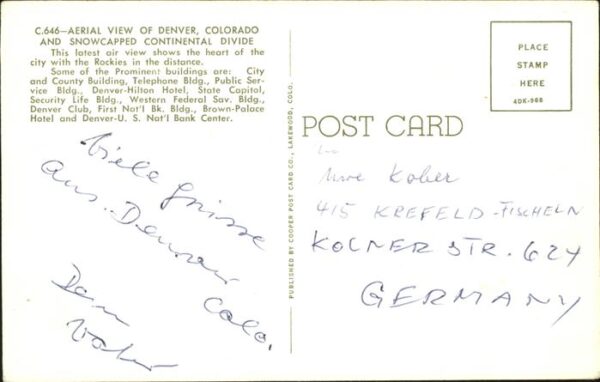 C.646—AERIAL VIEW OF DENVER, COLORADO
AND SNOWCAPPED CONTINENTAL DIVIDE
This latest air view shows the heart of the
city with the Rockies in the distance.
Some of the Prominent buildings are: City
and County Building, Telephone Bldg., Public Ser-
vice Bldg., Denver-Hilton Hotel, State Capitol,
Security Life Bldg., Western Federal Sav. Bldg.,
Denver Club, First Nat'l Bk. Bldg., Brown-Palace
Hotel and Denver-U. S. Nat'l Bank Center.
Viele Grüsse
aus Denver
Colo.
Dein
Vater
PUBLISHED BY COOPER POST CARD CO., LAKEWOOD, COLO.
POST CARD
PLACE
STAMP
HERE
40K-988
Uwe Kober
415 KREFELD-FISCHELN
KOLNER STR. 624
GERMANY